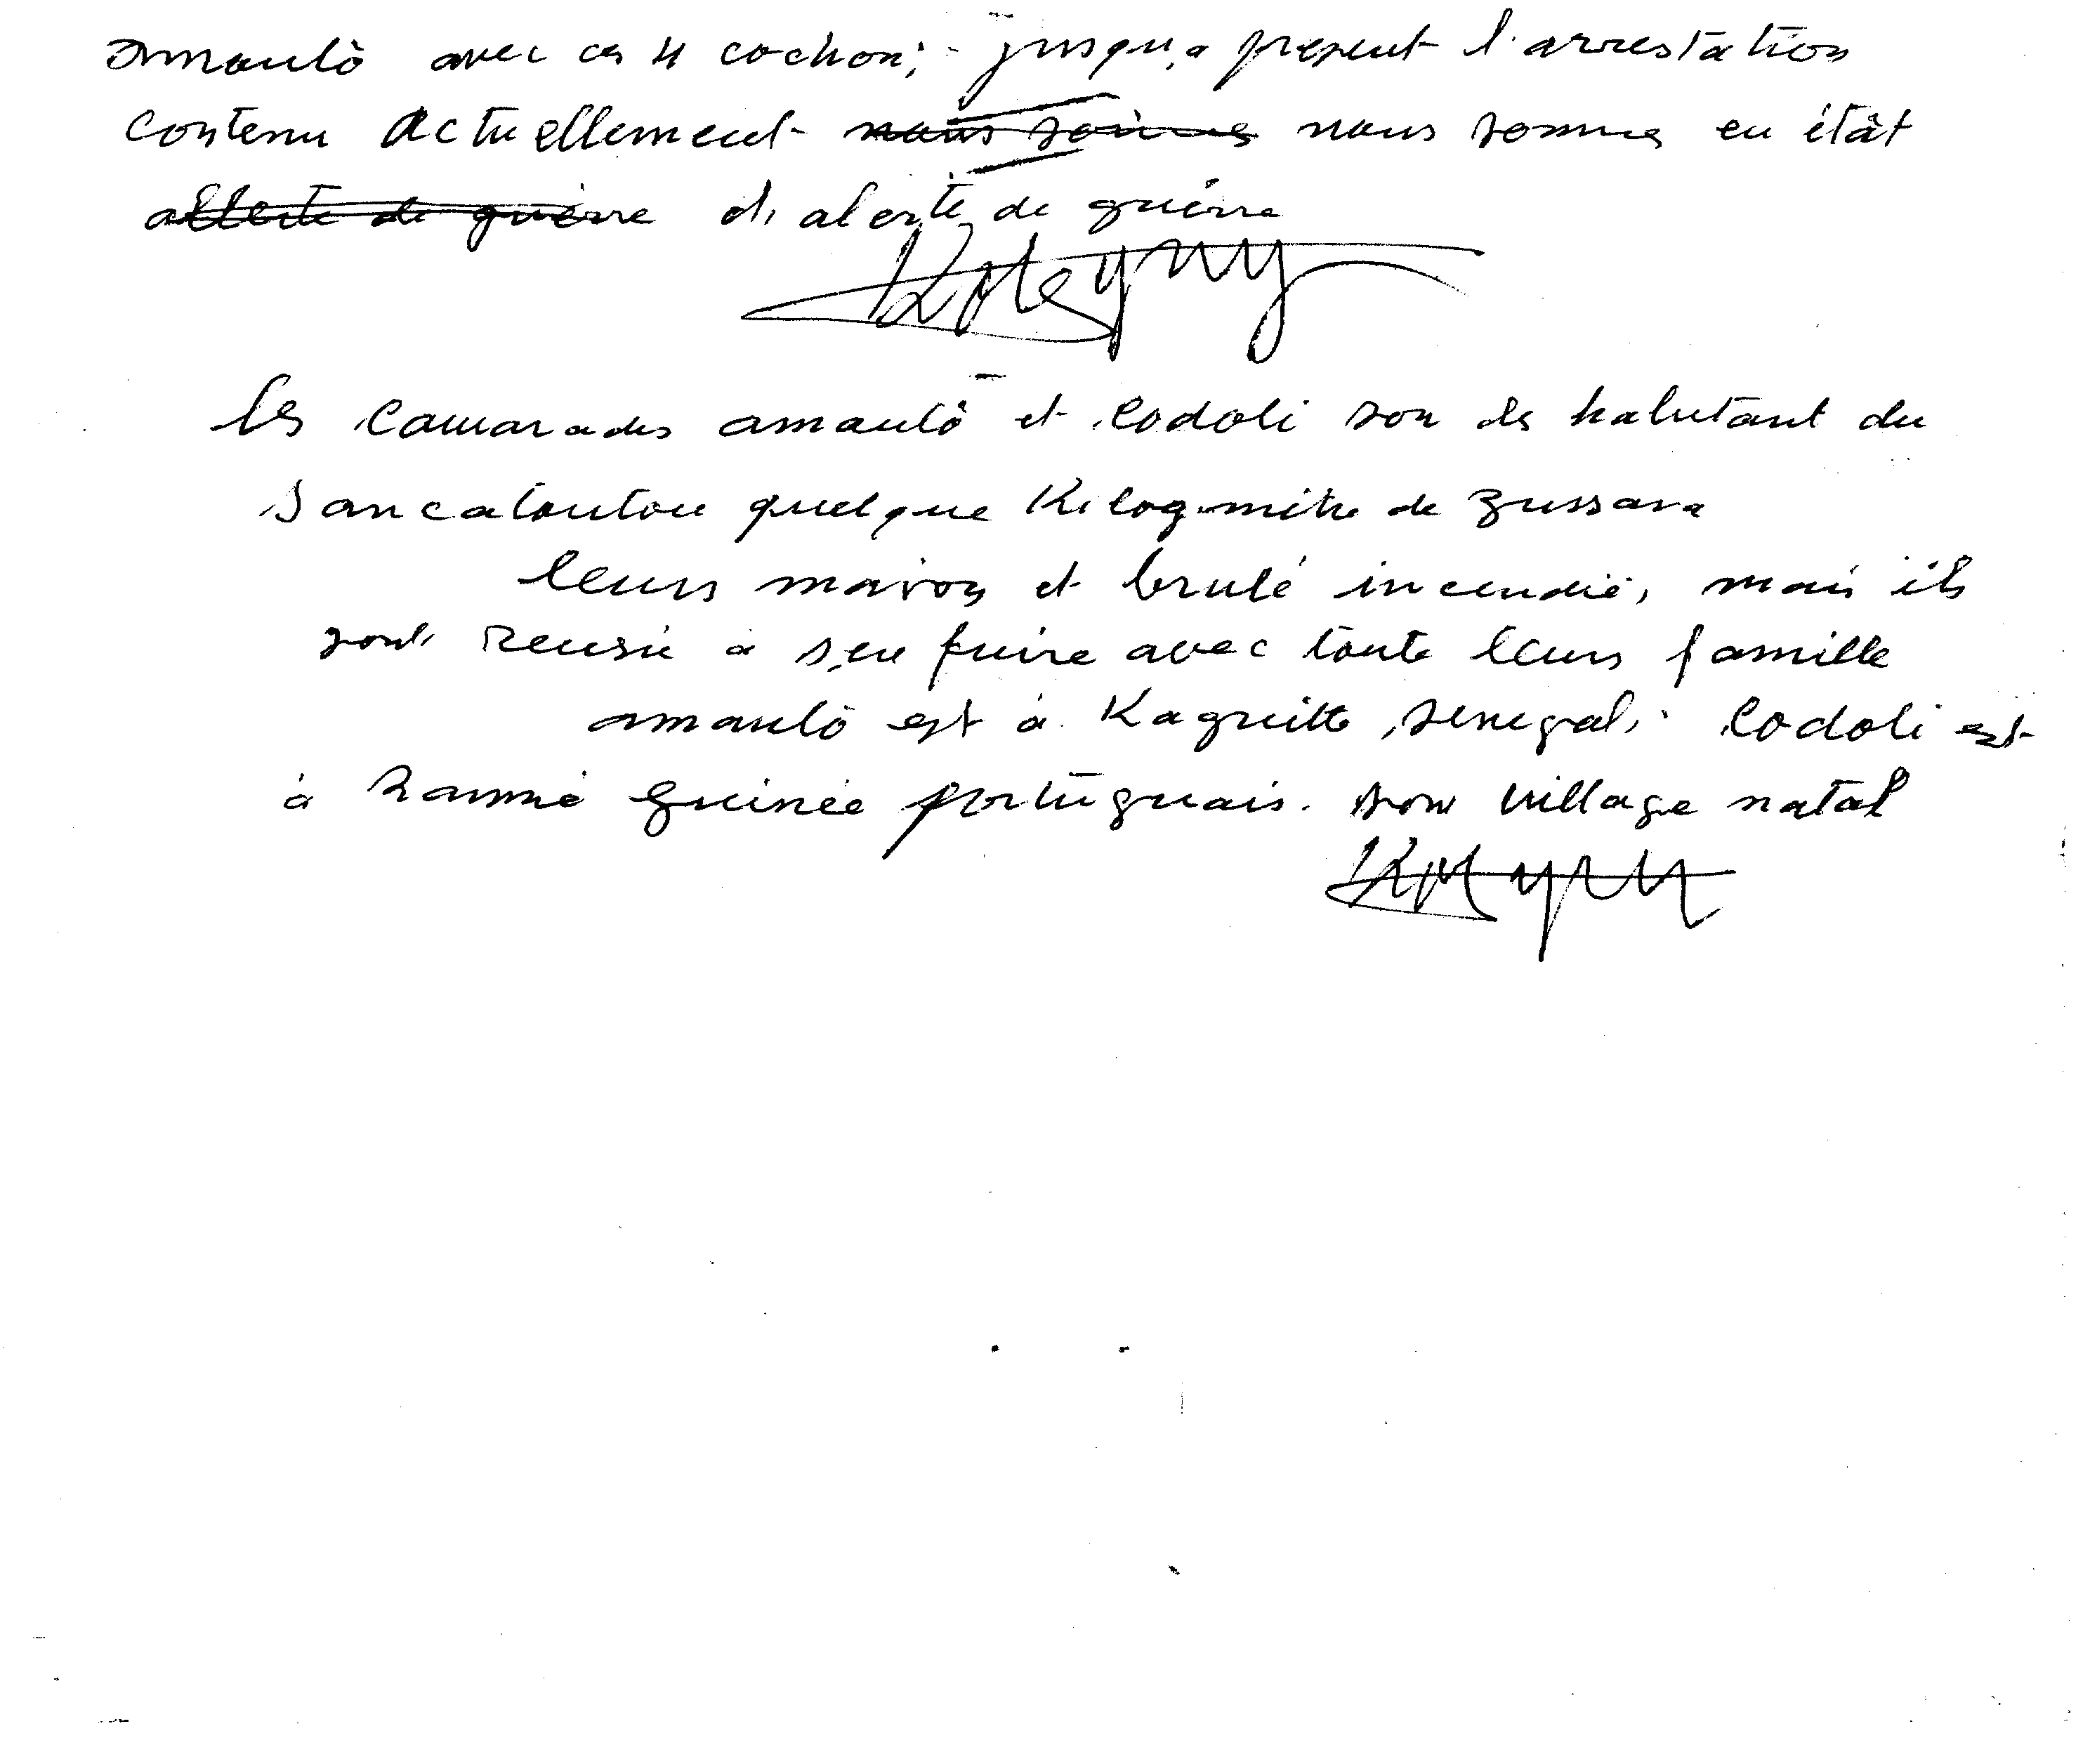 amoulô avec ces 4 cochon; jusqu,a present l'arrestation
contenu Actuellement nous somme nous somme en étât
allerte de guèrre d, alerte de guèrre
les camarades amoulô et Codoli son des habutant du
Sancaloutou quelque Kilog.mètre de Zussara
leurs maison et brulé incendié, mais ils
sont reussie a s,en fuire avec toute leurs famille
amoulô est à Kaguitte, senegal, Codoli est
à guinée portuguais. son village natal